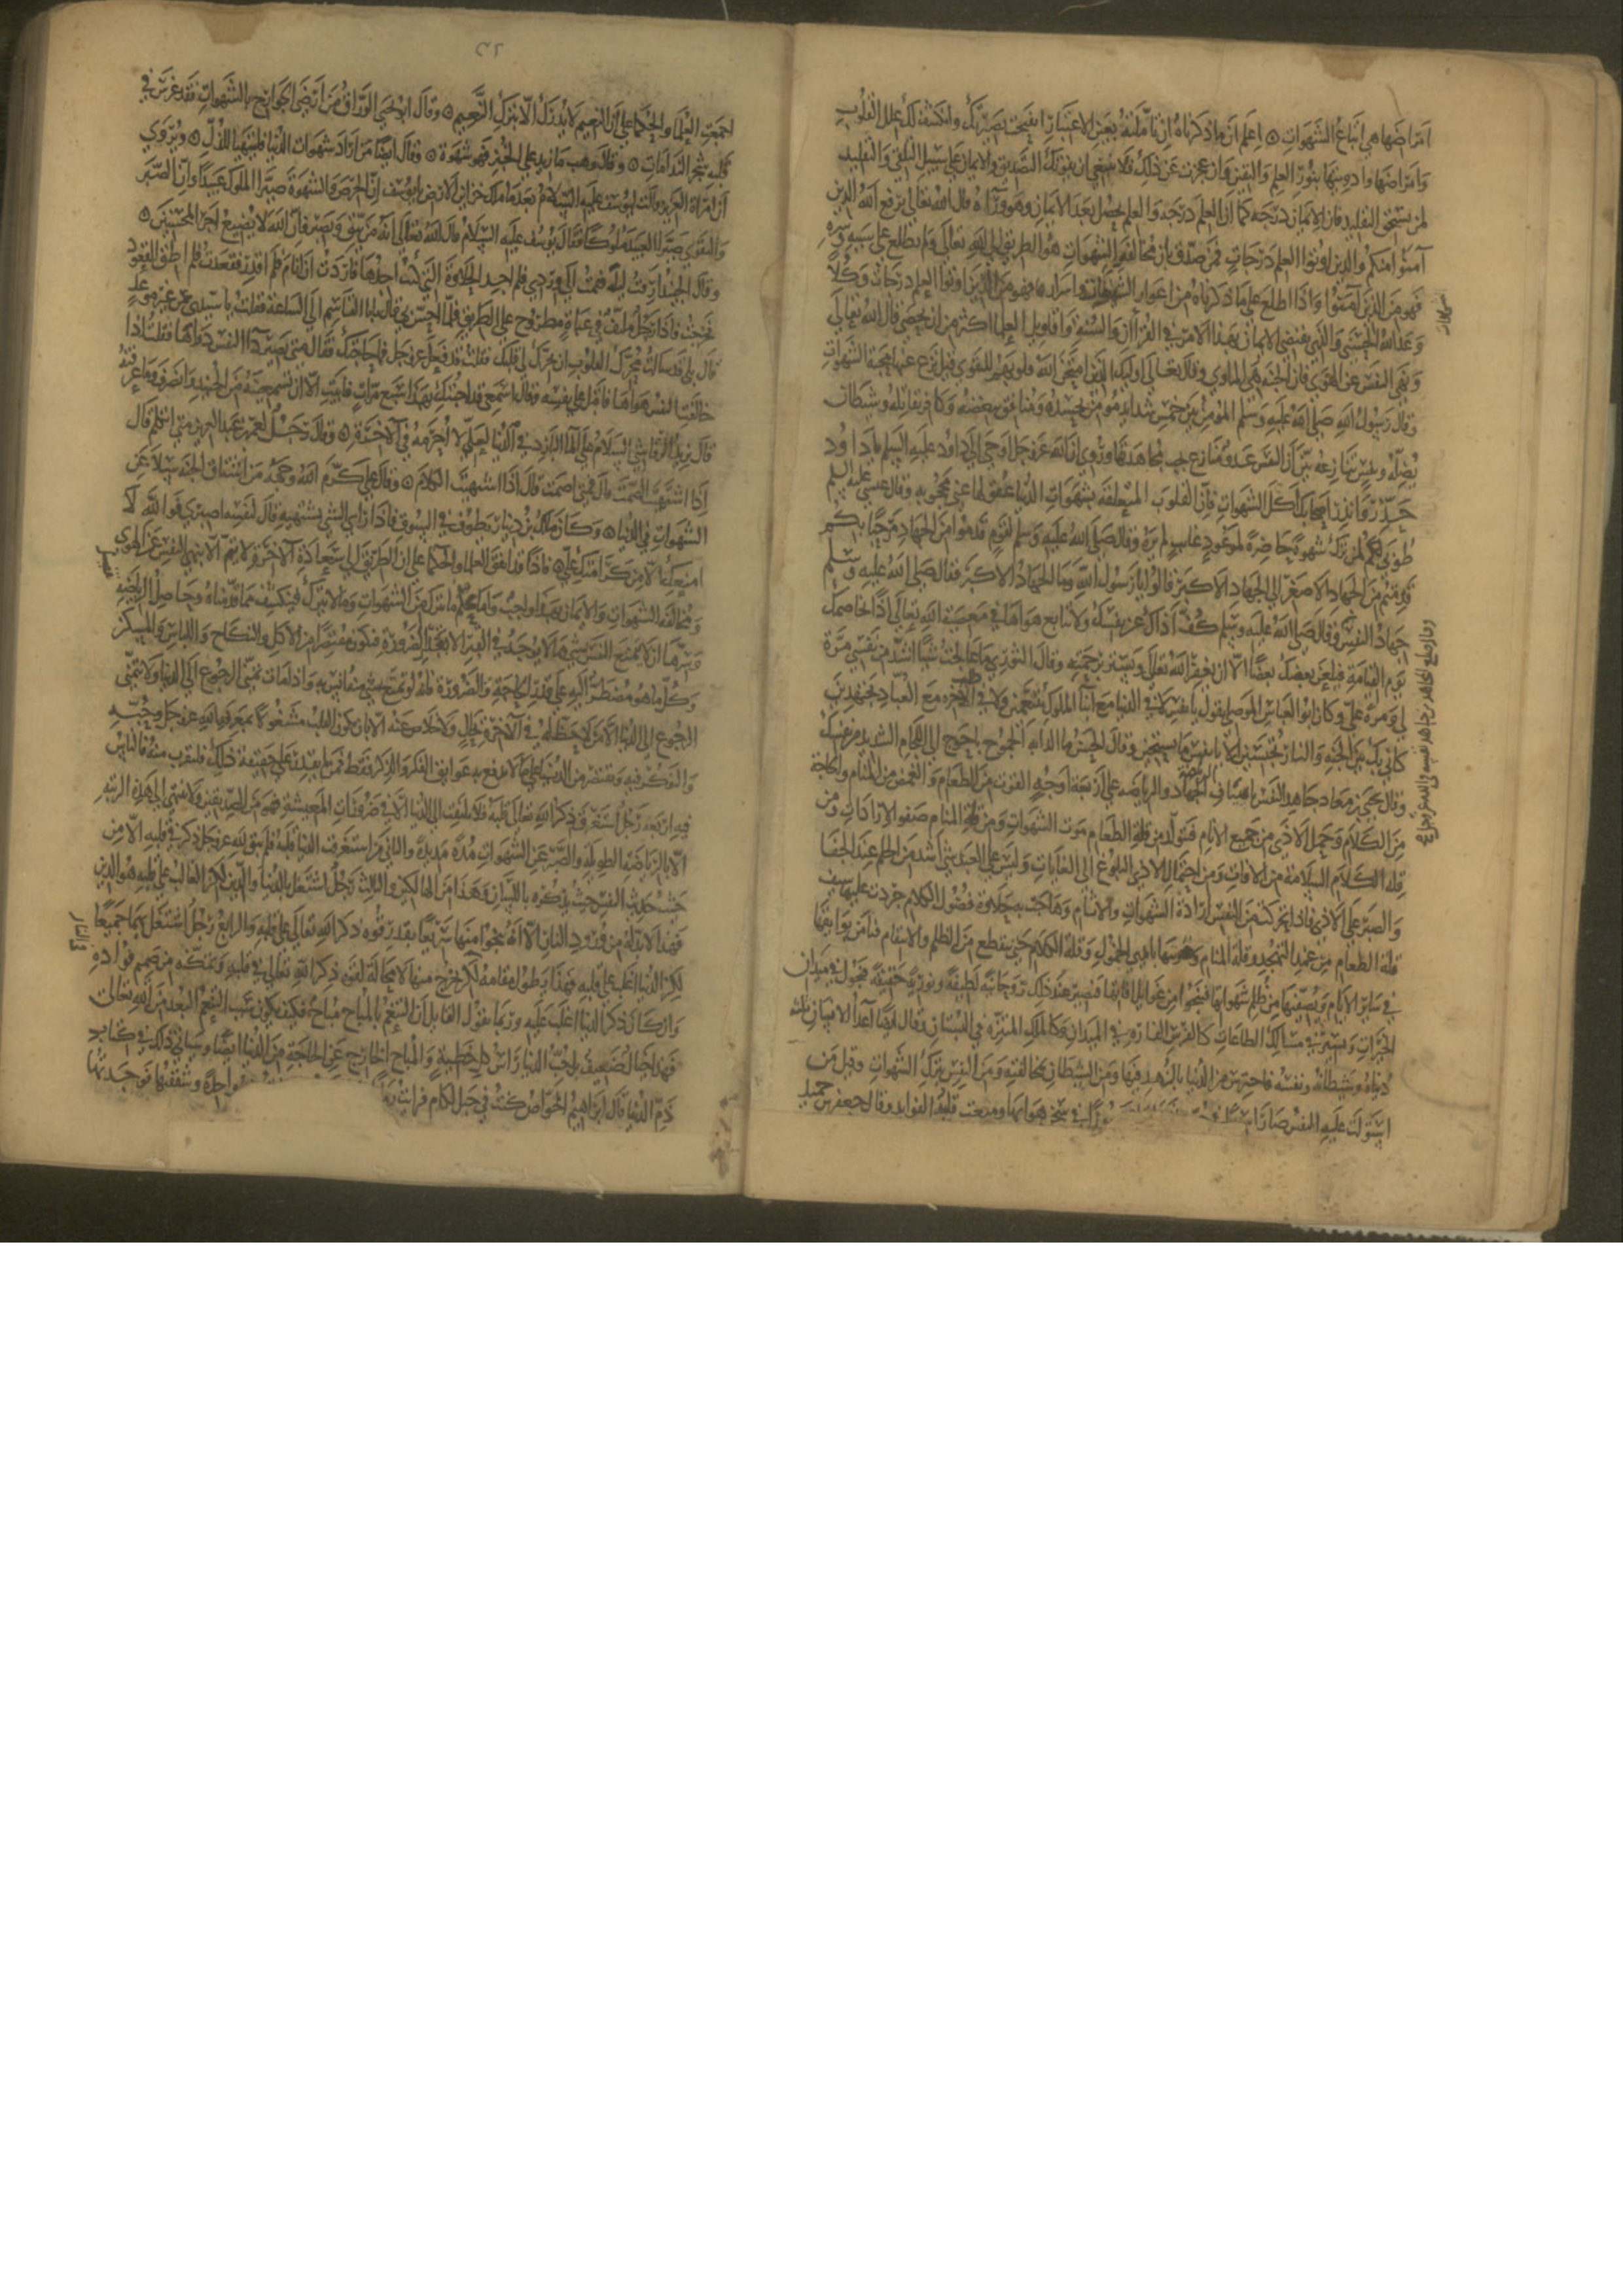 امراضها هي اتباع الشهوات ۞ اعلم ان ما ذكرناه ان تاملته بعين الاعتبار انفتحت بصيرتك وانكشفت لك علل القلوب
وامراضها وادويتها بنور العلم واليقين وان عجزت عن ذلك فلا ينبغي ان يفوتك التصديق والايمان على سبيل التلقي والتقليد
لمن يستحق التقليد فان للايمان درجة كما ان للعلم درجة والعلم يحصل بعد الايمان وهو وراه قال الله تعالى يرفع الله الذين
آمنوا منكم والذين اوتوا العلم درجات فمن صدق بان مخالفة الشهوات هو الطريق الى الله تعالى ولم يطلع على سببه وسره
فهو من الذين آمنوا واذا اطلع على ما ذكرناه من اعوان الشهوات واسرارها فهو من الذين اوتوا العلم درجات وكلا
وعد الله الحسنى والذي يقتضي الايمان بهذا الامر في القرآن والسنة واقاويل العلما اكثر من ان يحصى قال الله تعالى
ونهى النفس عن الهوى فان الجنة هي الماوى وقال تعالى اوليك الذين امتحن الله قلوبهم للتقوى قيل نزع عنها محبة الشهوات
وقال رسول الله صلى الله عليه وسلم المومن بين خمس شدايد مومن يحسده ومنافق يبغضه وكافر يقاتله وشيطان
يضله ونفس تنازعه بين ان النفس عدو منازع يجب مجاهدتها وروي ان الله عز وجل اوحى الى داود عليه السلم يا داود
حذر وانذر اصحابك اكل الشهوات فان القلوب المتعلقة بشهوات الدنيا عقولها عني محجوبة وقال عيسى عليه السلم
طوبى لمن ترك شهوة حاضرة لموعود غايب لم يره وقال صلى الله عليه وسلم لقوم قدموا من الجهاد مرحبا بكم
قدمتم من الجهاد الاصغر الى الجهاد الاكبر قالوا يا رسول الله وما الجهاد الاكبر فقال صلى الله عليه وسلم
جهاد النفس وقال صلى الله عليه وسلم كف اذاك عن نفسك ولا تتابع هواها في معصية الله تعالى اذا تخاصمك
يوم القيامة فيلعن بعضك بعضا الا ان يغفر الله تعالى ويستر برحمته وقال الثوري ما عالجت شيا اشد من نفسي مرة
لي ومرة علي وكان ابو العباس الموصلي يقول يا نفس لا في الدنيا مع ابنا الملوك تتنعمين ولا في الاخرة مع العباد تجتهدين
كاني بك بين الجنة والنار تحبسين الا يا نفس ما تستحين وقال الحسن ما الدابة الجموح باحوج الى اللجام الشديد من نفسك
وقال يحيى بن معاذ جاهد النفس باصناف الجهاد والرياضة على اربعة اوجه القوت من الطعام والغمض من المنام والحاجة
من الكلام وحمل الاذى من جميع الانام فيتولد من قلة الطعام موت الشهوات ومن قلة المنام صفو الارادات ومن
قلة الكلام السلامة من الافات ومن احتمال الاذى البلوغ الى الغايات وليس على العبد شي اشد من الحلم عند الجفا
والصبر على الاذى فاذا تحركت من النفس ارادة الشهوات والاثام وهاجت به حلاوة فضول الكلام جردت عليها سيف
قلة الطعام من غمد التهجد وقلة المنام وضربتها بايدي الخمول وقلة الكلام حتى ينقطع من الظلم والانتقام فتامن بوايقها
في ساير الايام وتصفيها من ظلم شهواتها فتنجوا من غوايل افاتها فتصير عند ذلك روحانية لطيفة ونورية خفيفة فتجول في ميدان
الخيرات وتسير في مسالك الطاعات كالفرس الفاره في الميدان وكالملك المتنزه في البستان وقال ايضا اعدا الانسان ثلثة
دنياه وشيطانه ونفسه فاحترس من الدنيا بالزهد فيها ومن الشيطان بمخالفته ومن النفس بترك الشهوات وقيل من
استولت عليه النفس صار اسيرا في سجن هواها ومنعت قلبه الفوايد وقال جعفر بن حميد
اجمعت العلما والحكما على ان النعيم لا يدرك الا بترك النعيم ۞ وقال ابو يحيى الوراق من ارضى الجوارح بالشهوات فقد غرس في
قلبه شجر الندامات ۞ وقال وهب ما زيد على الخبز فهو شهوة ۞ وقال ايضا من اراد شهوات الدنيا فليتهيا للذل ۞ ويروى
ان امراة العزيز قالت ليوسف عليه السلام بعد ما ملك خزاين الارض يا يوسف ان الحرص والشهوة صيرا الملوك عبيدا وان الصبر
والتقوى صيرا العبيد ملوكا فقال يوسف عليه السلام قال الله تعالى انه من يتق ويصبر فان الله لا يضيع اجر المحسنين ۞
وقال الجنيد ارقت ليلة فقمت الى وردي فلم اجد الحلاوة التي كنت اجدها فاردت ان انام فلم اقدر فقعدت فلم اطق القعود
فخرجت واذا رجل ملتف في عباة مطروح على الطريق فلما احس بي قال يا ابا القاسم الى الساعة فقلت يا سيدي عن غير موعد
قال بلى قد سالت محرك القلوب ان يحرك لي قلبك فقلت قد فعل عز وجل فما حاجتك فقال متى يصير دا النفس دواها فقلت اذا
خالفت النفس هواها فاقبل على نفسه وقال اسمعي قد اجبتك بهذا سبع مرات فابيت الا ان تسمعيه من الجنيد وانصرف وما عرفته
قال يزيد الرقاشي اليكم عني الما البارد في الدنيا لعلي لا احرمه في الاخرة ۞ وقال رجل لعمر بن عبد العزيز متى اتكلم قال
اذا اشتهيت الصمت قال فمتى اصمت قال اذا اشتهيت الكلام ۞ وقال علي كرم الله وجهه من اشتاق الى الجنة سلا عن
الشهوات في الدنيا ۞ وكان ملك بن دينار يطوف في السوق فاذا راى الشي يشتهيه قال لنفسه اصبري فوالله لا
امنعك الا من كرامتك علي ۞ فاذا قد اتفق العلما والحكما على ان الطريق الى سعادة الاخرة ولا يتم الا بنهي النفس عن الهوى
ومخالفة الشهوات والايمان بهذا واجب واما علم ما يترك من الشهوات وما لا يترك فينكشف بما قدمناه وحاصل الرياضة
وسرها ان لا تمتع النفس بشي مما لا يوجد في القبر الا بقدر الضرورة فيكون مقتصرا من الاكل والنكاح واللباس والمسكن
وكل ما هو مضطر اليه على قدر الحاجة والضرورة فانه لو تمتع بشي منها انس به واذا مات تمنى الرجوع الى الدنيا ولا يتمنى
الرجوع الى الدنيا الا من لا حظ له في الاخرة بحال ولا خلاص عنه الا بان يكون القلب مشغولا بمعرفة الله عز وجل وحبه
والتفكر فيه ويقتصر من الدنيا على ما لا يدفع به عوايق الفكر والذكر فقط فمن لم يقدر على حقيقة ذلك فليقرب منه فالناس
فيه اربعة رجل استغرق ذكر الله تعالى قلبه فلا يلتفت الى الدنيا الا في ضرورات المعيشة فهو من الصديقين ولا ينتهي الى هذه الرتبة
الا بالرياضة الطويلة والصبر عن الشهوات مدة مديدة والثاني من استغرقت الدنيا قلبه فلم يبق لله عز وجل ذكر في قلبه الا من
حيث حديث النفس حيث يذكره باللسان وهذا من الهالكين والثالث رجل اشتغل بالدنيا والدين لكن الغالب على قلبه هو الدين
فهذا لا بد له من ورود النار الا انه ينجوا منها سريعا بقدر قوة ذكر الله تعالى على قلبه والرابع رجل اشتغل بهما جميعا
لكن الدنيا اغلب على قلبه فهذا يطول مقامه لكن يخرج منها لا محالة لقوة ذكر الله تعالى في قلبه وتمكنه من صميم فواده
وان كان ذكر الدنيا اغلب عليه وربما يقول القايل ان التنعم بالمباح مباح فكيف يكون سبب التنعم البعد من الله تعالى
فهذا خيال ضعيف بل حب الدنيا راس كل خطية والمباح الخارج عن الحاجة من الدنيا ايضا وسياتي ذلك في كتاب
ذم الدنيا قال ابراهيم الخواص كنت في جبل اللكام فرايت واحدة وشققتها فوجدتها